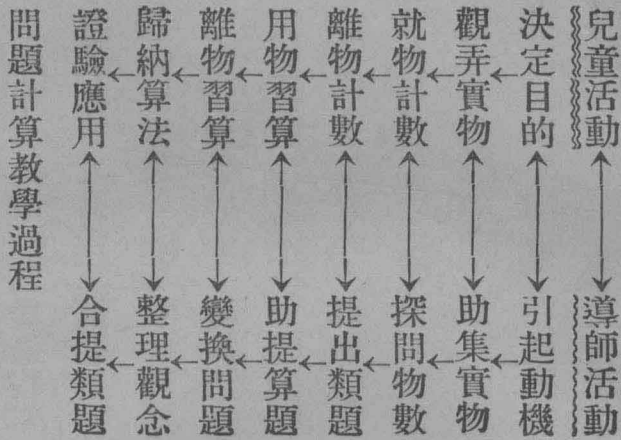 兒童活動
導師活動
決定目的
引起動機
觀弄實物
助集實物
就物計數
探問物數
離物計數
提出類題
用物習算
助提算題
離物習算
變換問題
歸納算法
整理觀念
證驗應用
合提類題
問題計算教學過程